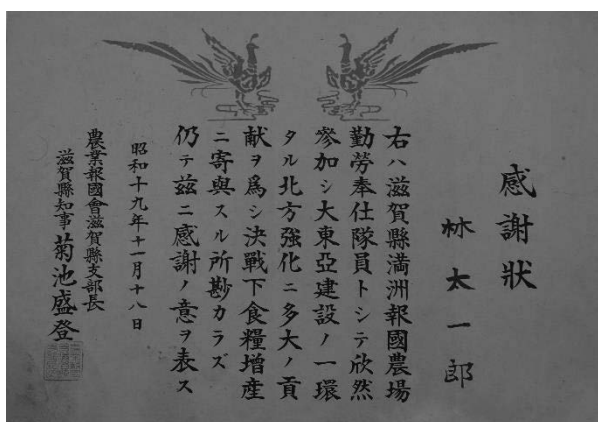 感謝狀
林太一郎
右ハ滋賀縣満洲報國農場
勤勞奉仕隊員トシテ欣然
參加シ大東亞建設ノ一環
タル北方強化ニ多大ノ貢
献ヲ爲シ決戰下食糧增産
ニ寄與スル所尠カラズ
仍テ茲ニ感謝ノ意ヲ表ス
昭和十九年十一月十八日
農業報國會滋賀縣支部長
滋賀縣知事 菊池盛登